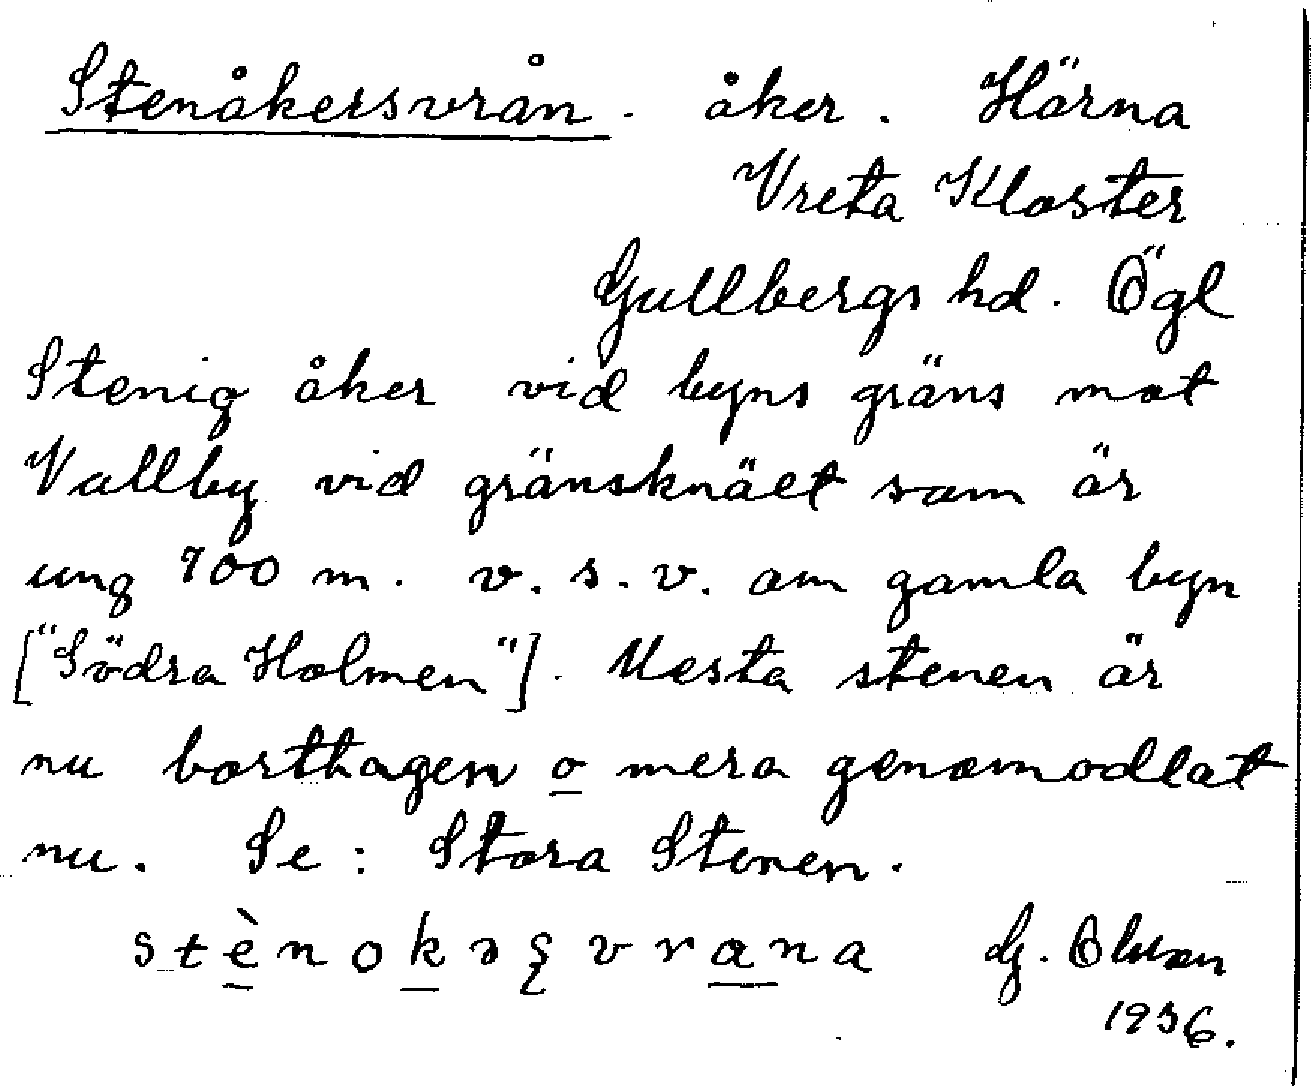 Stenåkersvrån. åker. Härna
Vreta Kloster
Gullbergs hd. Ögl
Stenig åker vid byns gräns mot
Vallby vid gränsknäet som är
ung 700 m. v. s. v. om gamla byn
["Södra Holmen"]. Mesta stenen är
nu borttagen o mera genomodlat
nu. Se: Stora Stenen.
G. Olson
1936.